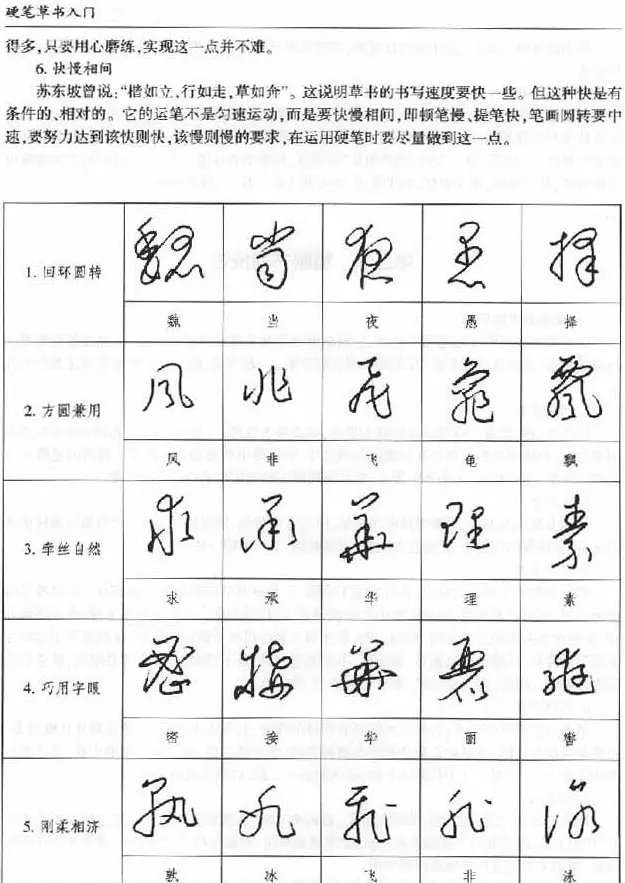 硬笔草书入门
得多，只要用心磨练，实现这一点并不难。
6. 快慢相间
苏东坡曾说：“楷如立，行如走，草如奔”。这说明草书的书写速度要快一些。但这种快是有
条件的、相对的。它的运笔不是匀速运动，而是要快慢相间，即顿笔慢、提笔快，笔画圆转要中
速，要努力达到该快则快，该慢则慢的要求，在运用硬笔时要尽量做到这一点。
1. 回环圆转
魏 当 夜 愚 择
2. 方圆兼用
风 非 飞 龟 飘
3. 牵丝自然
求 承 华 理 素
4. 巧用字眼
密 华 丽
5. 刚柔相济
敦 冰 飞 非 泳